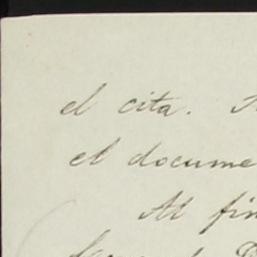 el cita.
el docume
Al fin